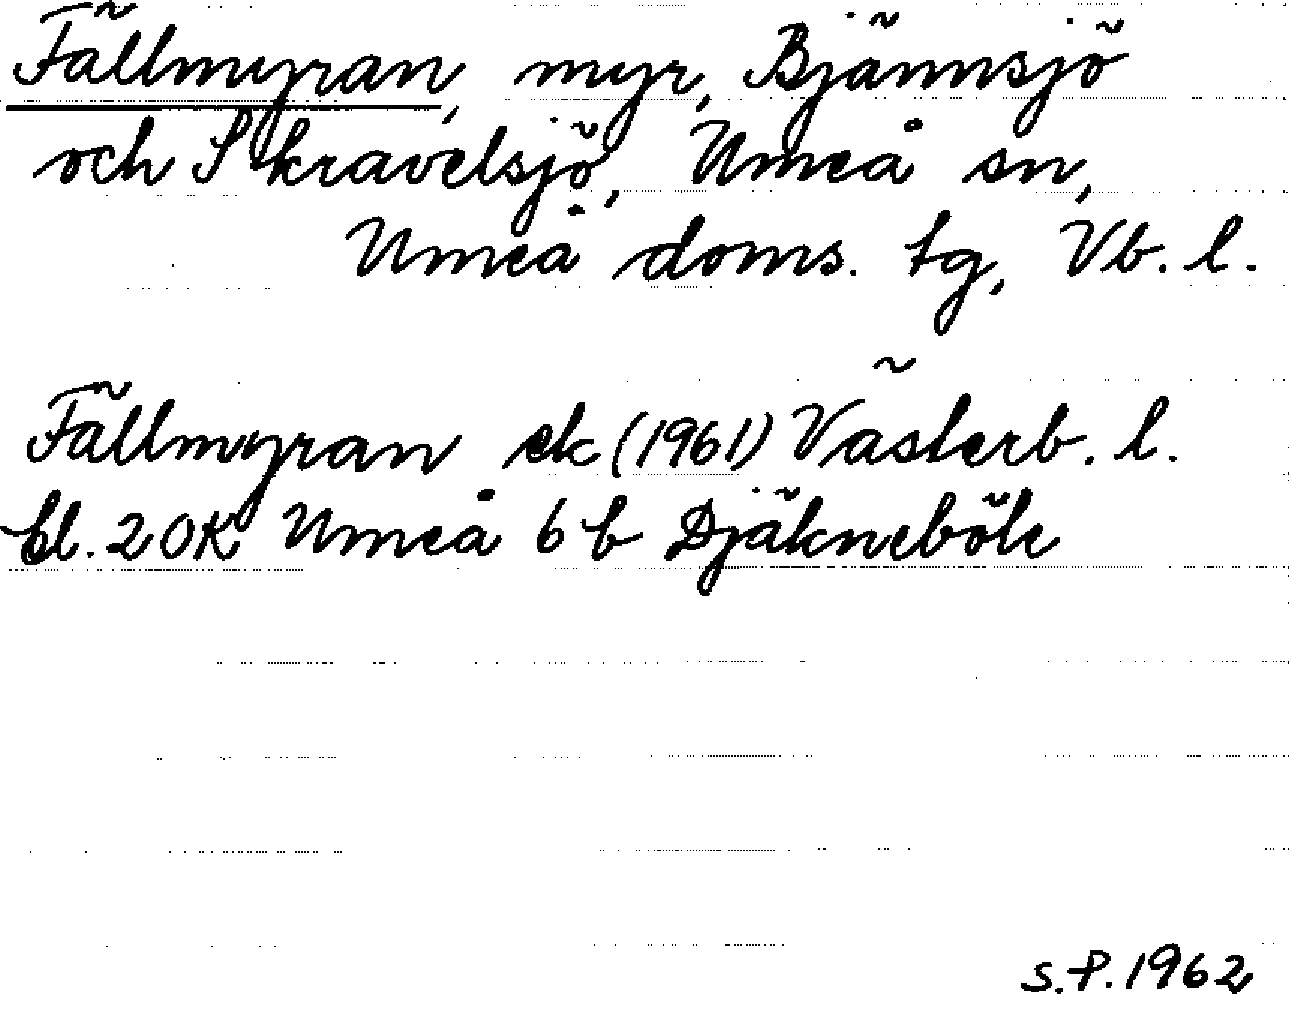 Fällmyran, myr, Bjännsjö
och Skravelsjö, Umeå sn,
Umeå doms. tg, Vb. l.
Fällmyran ek (1961) Västerb. l.
bl. 20K Umeå 6b Djäkneböle
S.P. 1962